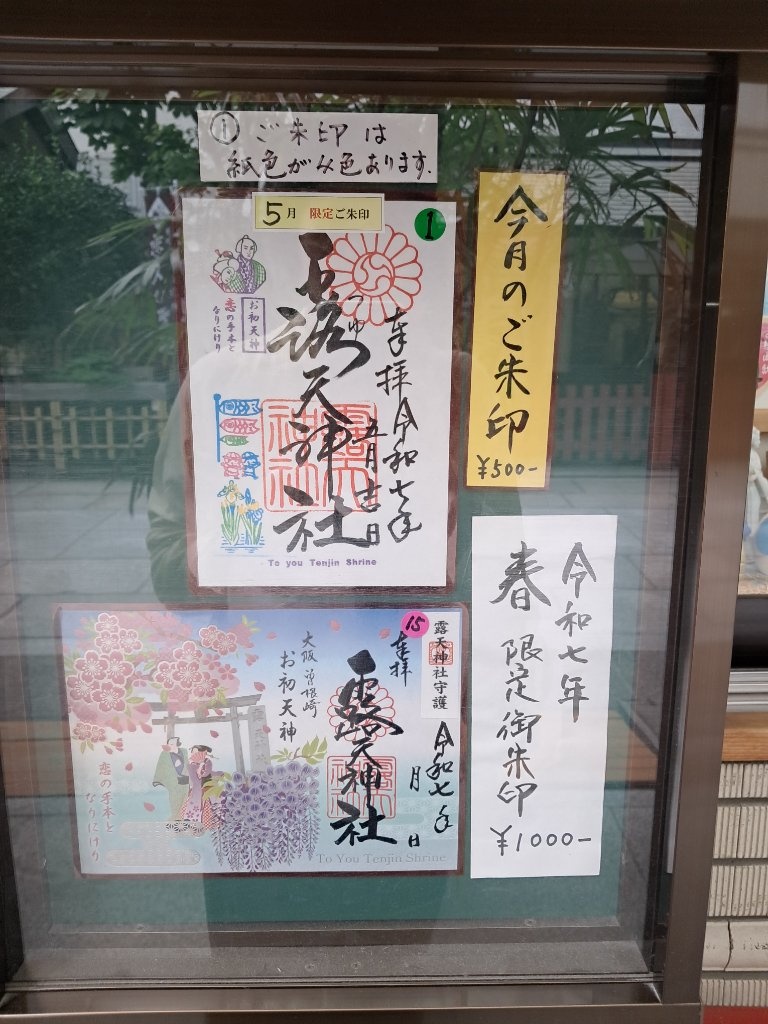 ① ご朱印は
紙色がみ色あります.
5月 限定ご朱印
1
奉拝
露天神社
つゆ
令和七年
五月吉日
お初天神
恋の手本と
なりにけり
To you Tenjin Shrine
今月のご朱印
¥500-
15
奉拝
露天神社守護
大阪 曽根崎
お初天神
露天神社
令和七年
月 日
恋の手本と
なりにけり
To You Tenjin Shrine
令和七年
春 限定御朱印
¥1000-